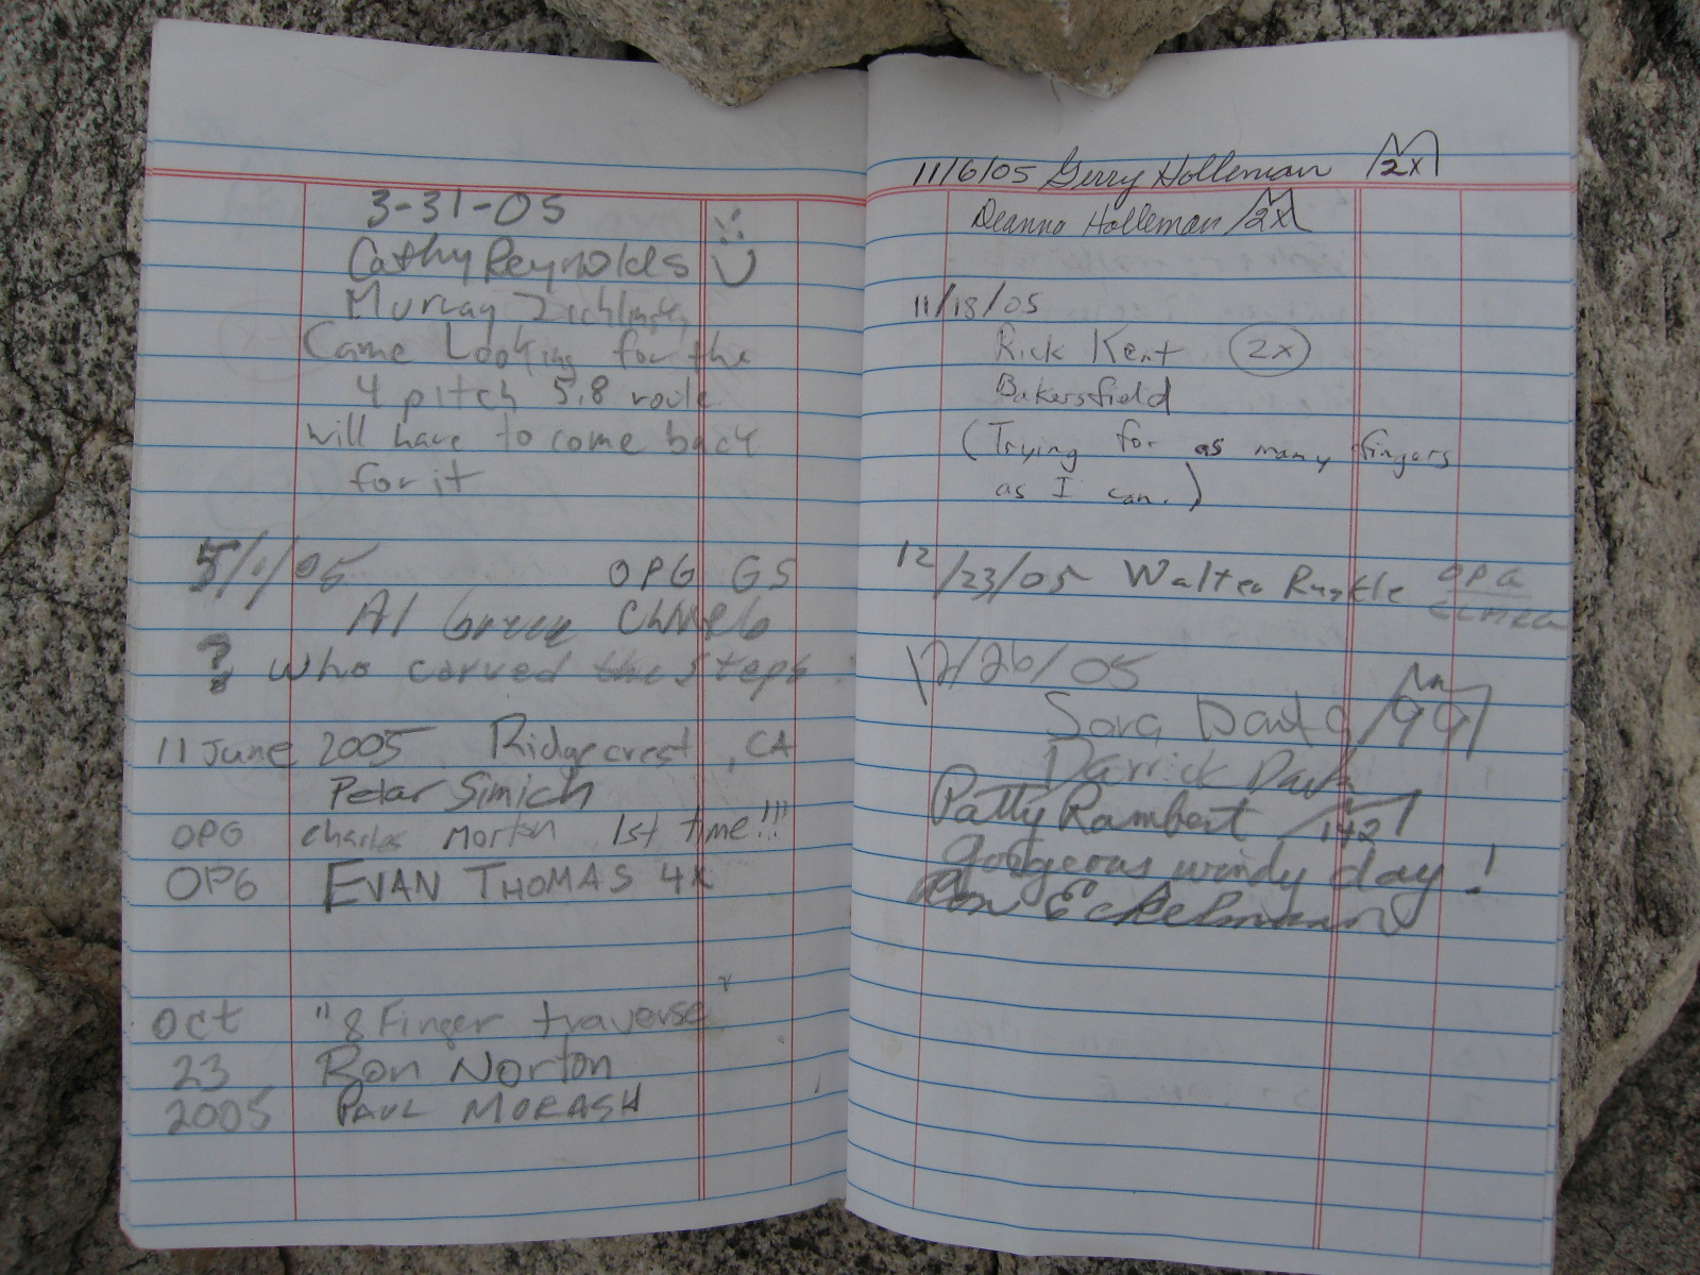 3-31-05
Cathy Reynolds
Murray
Came Looking for the
4 pitch 5.8 route
will have to come back
for it
5/1/05 OPG GS
Al Green
? Who carved the steps
11 June 2005 Ridgecrest, CA
Petar Simich
OPG Charles Morton 1st time!!!
OPG EVAN THOMAS 4X
Oct "8 Finger traverse"
23 Ron Norton
2005 PAUL MORASH
11/6/05 Gerry Holleman 2x
Deanna Holleman 2x
11/18/05
Rick Kent 2x
Bakersfield
(Trying for as many fingers
as I can.)
12/23/05 Walter OPG
12/26/05
Sara
Darrick
Patty Rambert 142
Gorgeous windy day!
Ron Eckelmann